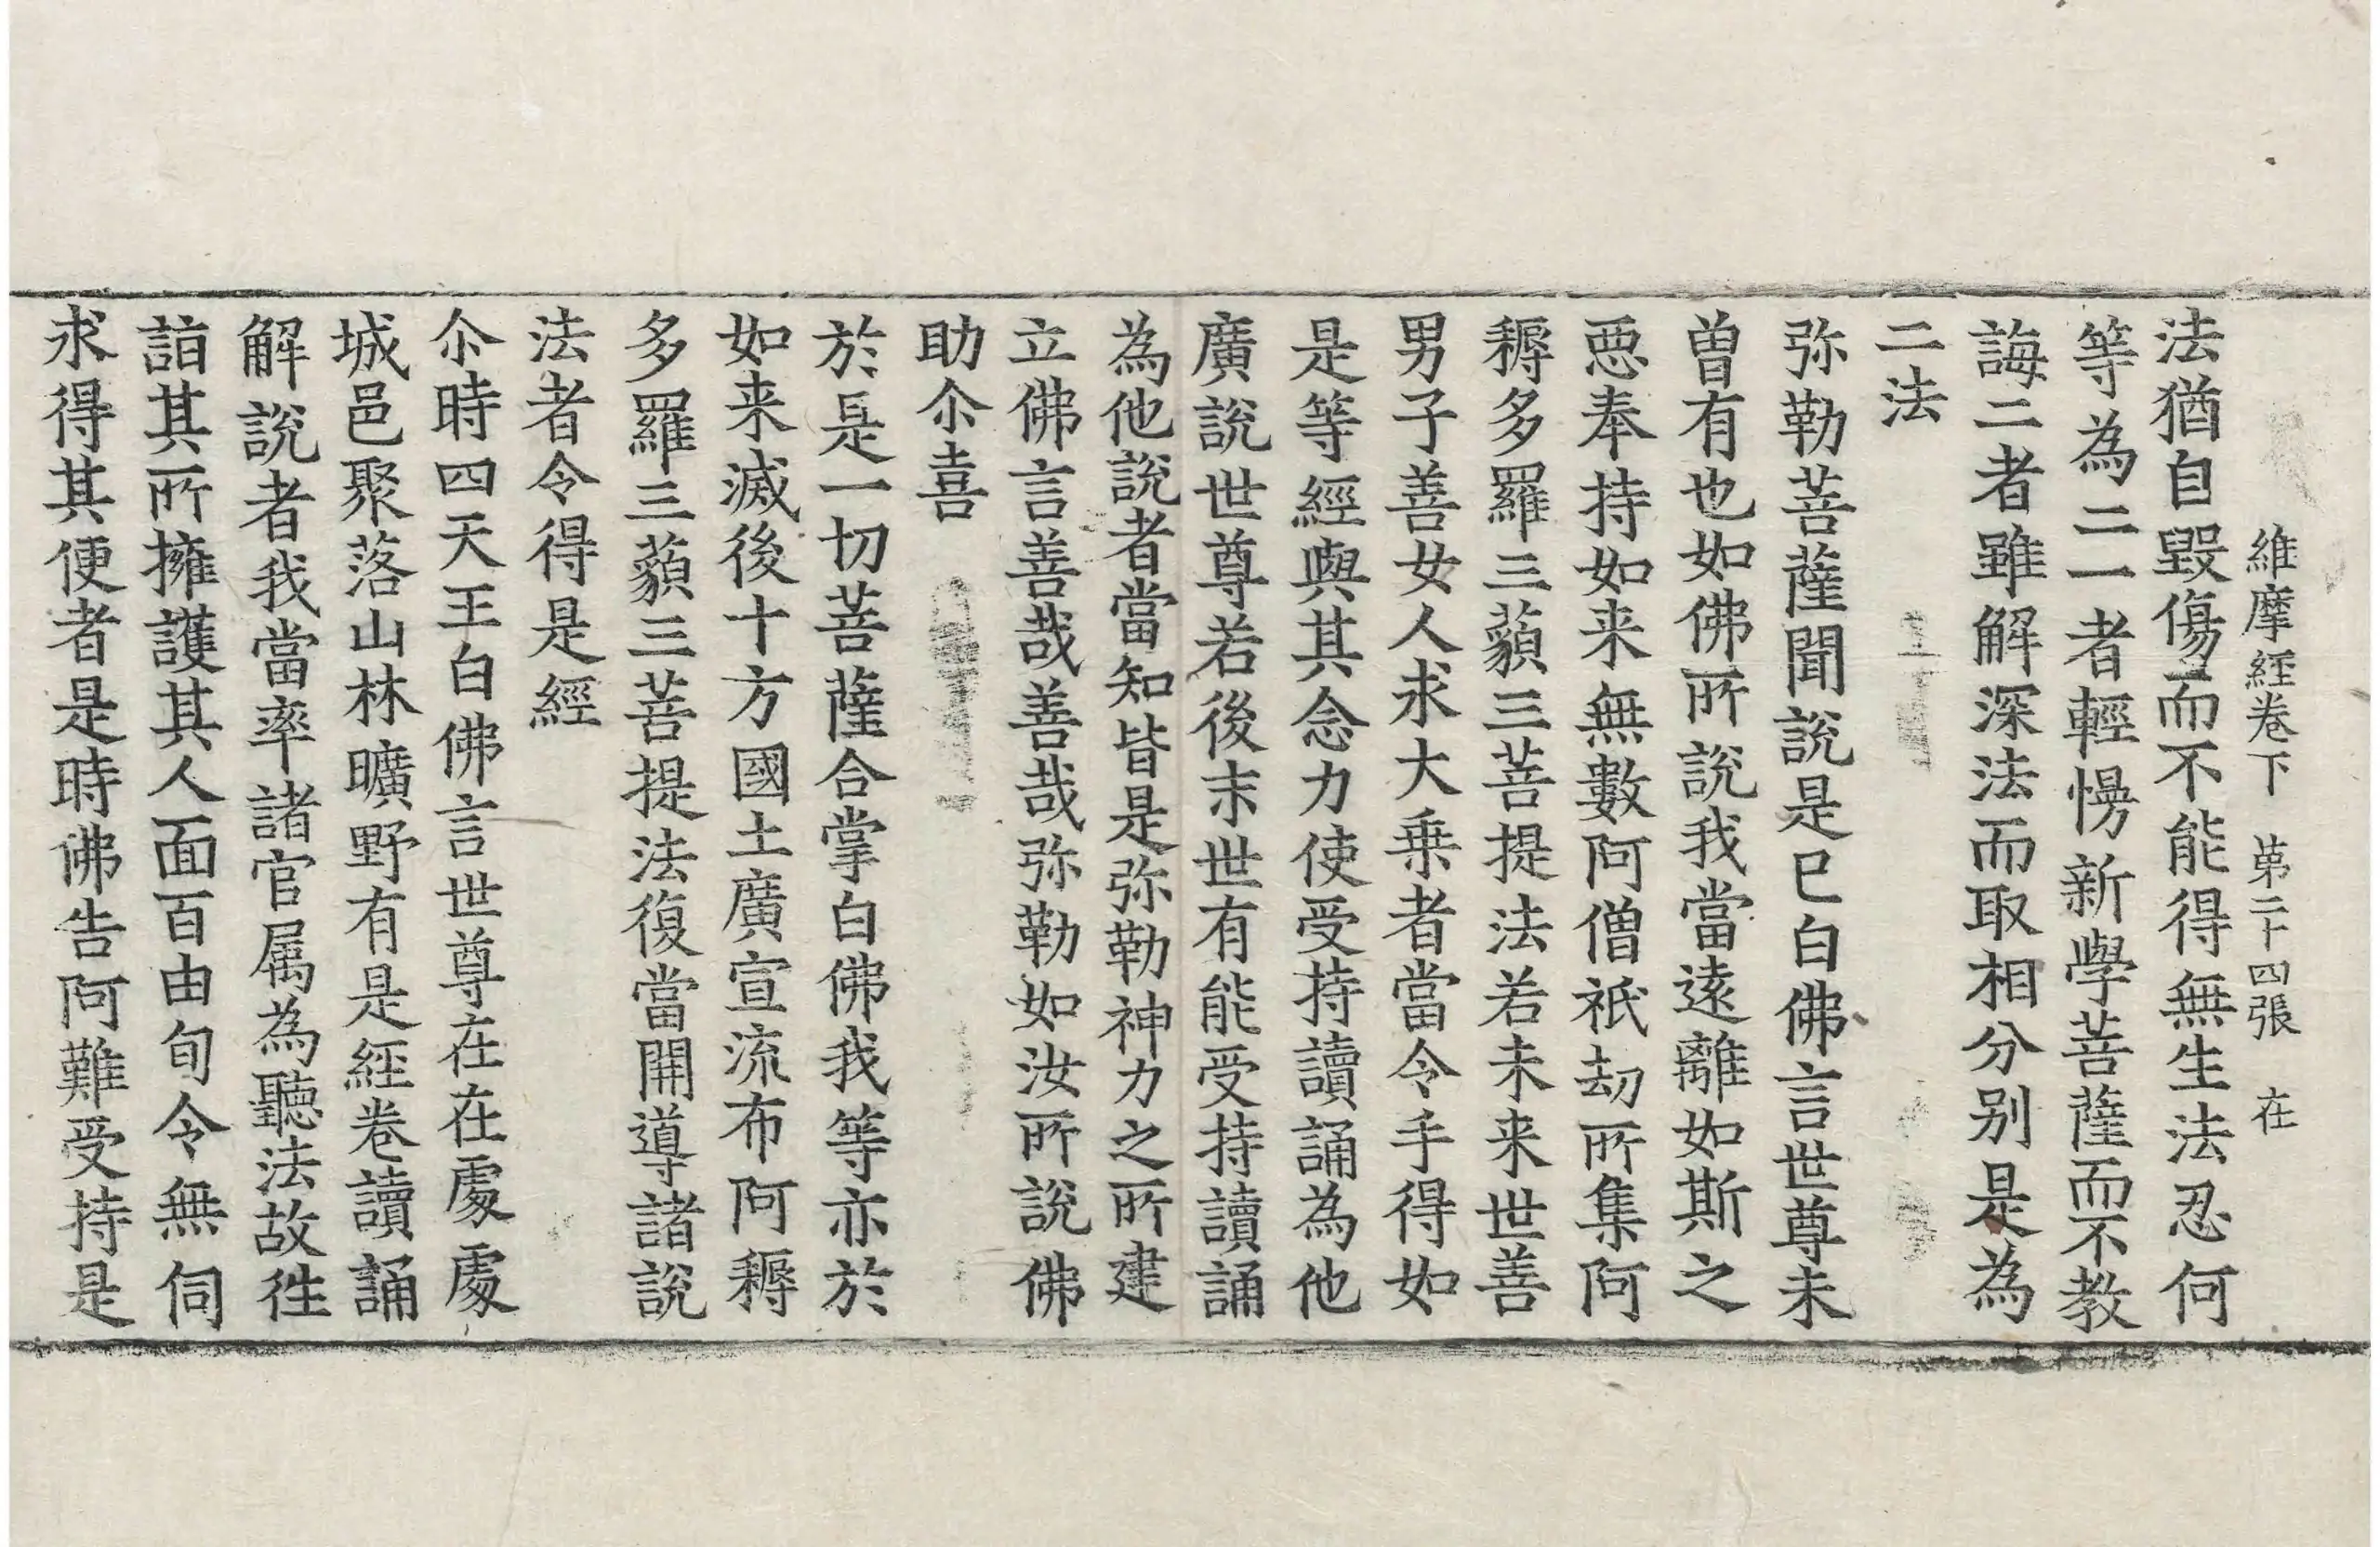 維摩經卷下 第二十四張 在
法猶自毀傷而不能得無生法忍何
等為二一者輕慢新學菩薩而不教
誨二者雖解深法而取相分别是為
二法
弥勒菩薩聞說是已白佛言世尊未
曽有也如佛所說我當遠離如斯之
惡奉持如来無數阿僧祇劫所集阿
耨多羅三藐三菩提法若未来世善
男子善女人求大乗者當令手得如
是等經與其念力使受持讀誦為他
廣說世尊若後末世有能受持讀誦
為他說者當知皆是弥勒神力之所建
立佛言善哉善哉弥勒如汝所說佛
助尒喜
於是一切菩薩合掌白佛我等亦於
如来滅後十方國土廣宣流布阿耨
多羅三藐三菩提法復當開導諸說
法者令得是經
尒時四天王白佛言世尊在在處處
城邑聚落山林曠野有是経卷讀誦
解說者我當率諸官属為聽法故徃
詣其所擁護其人面百由旬令無伺
求得其便者是時佛告阿難受持是